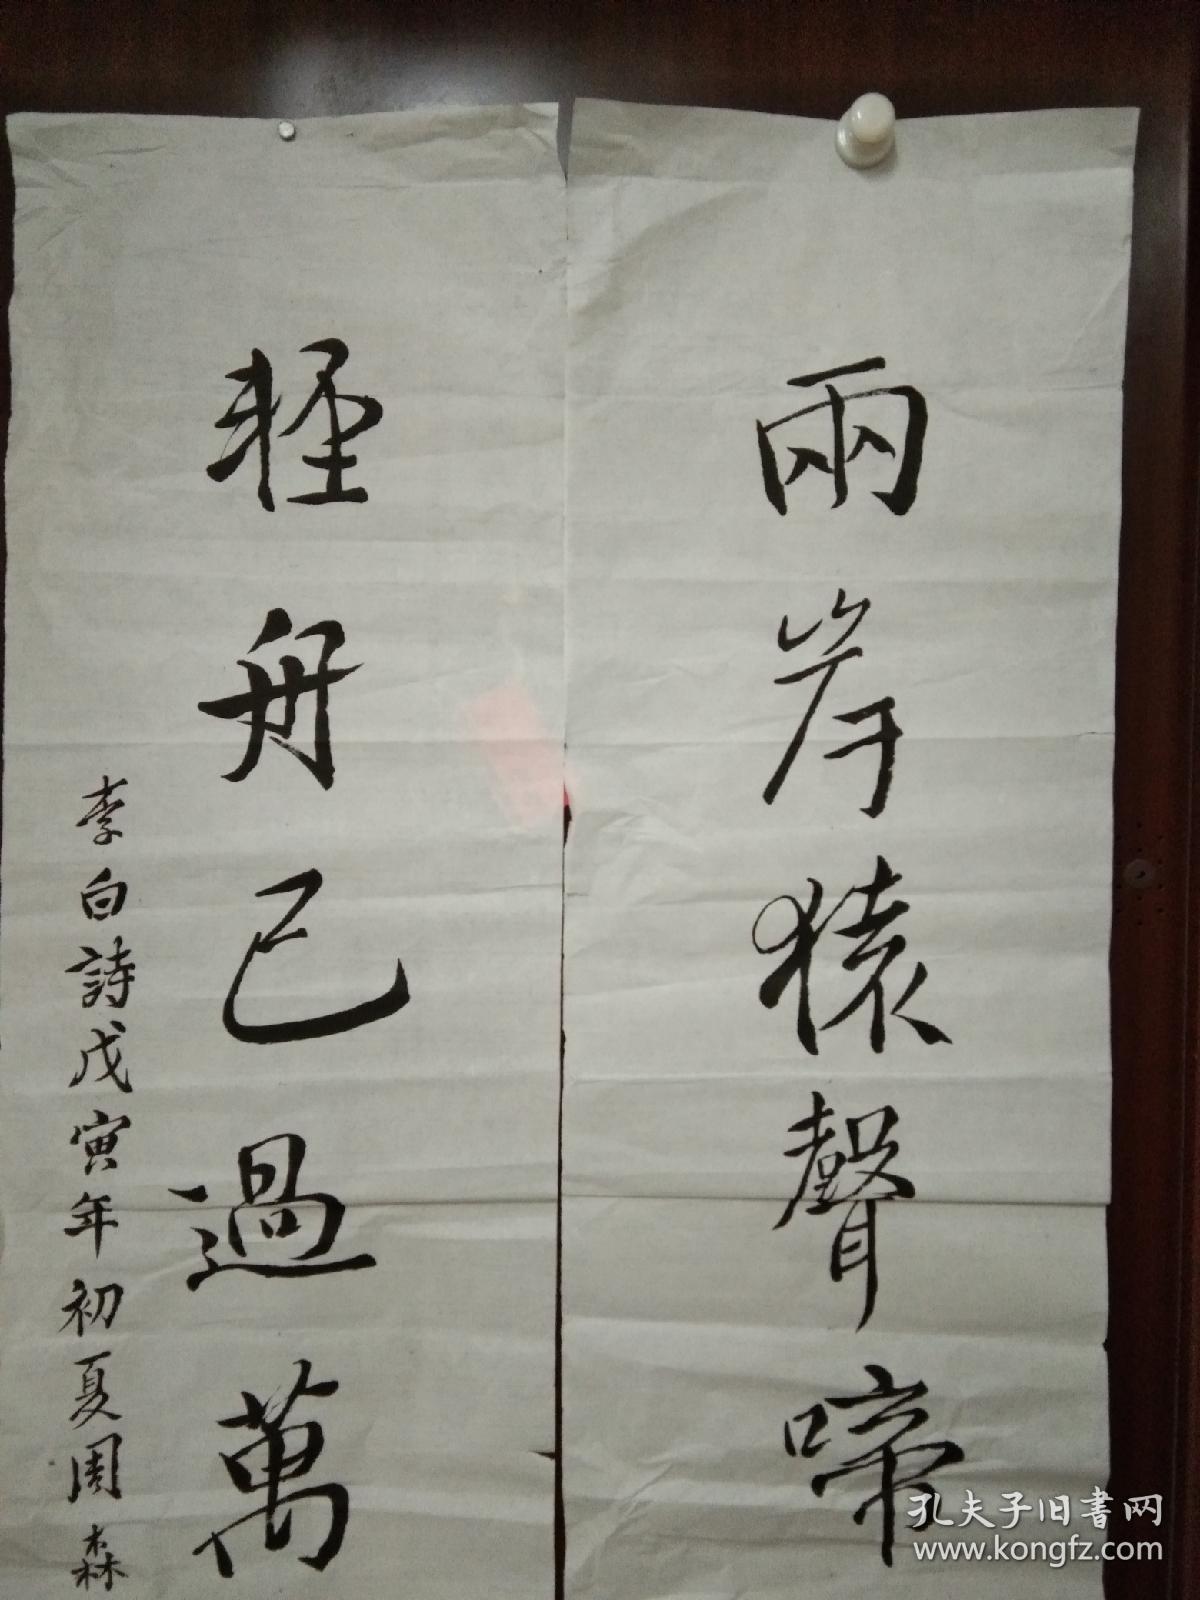 兩岸猿聲啼
輕舟已過萬
李白詩戊寅年初夏周森
孔夫子旧书网
www.kongfz.com